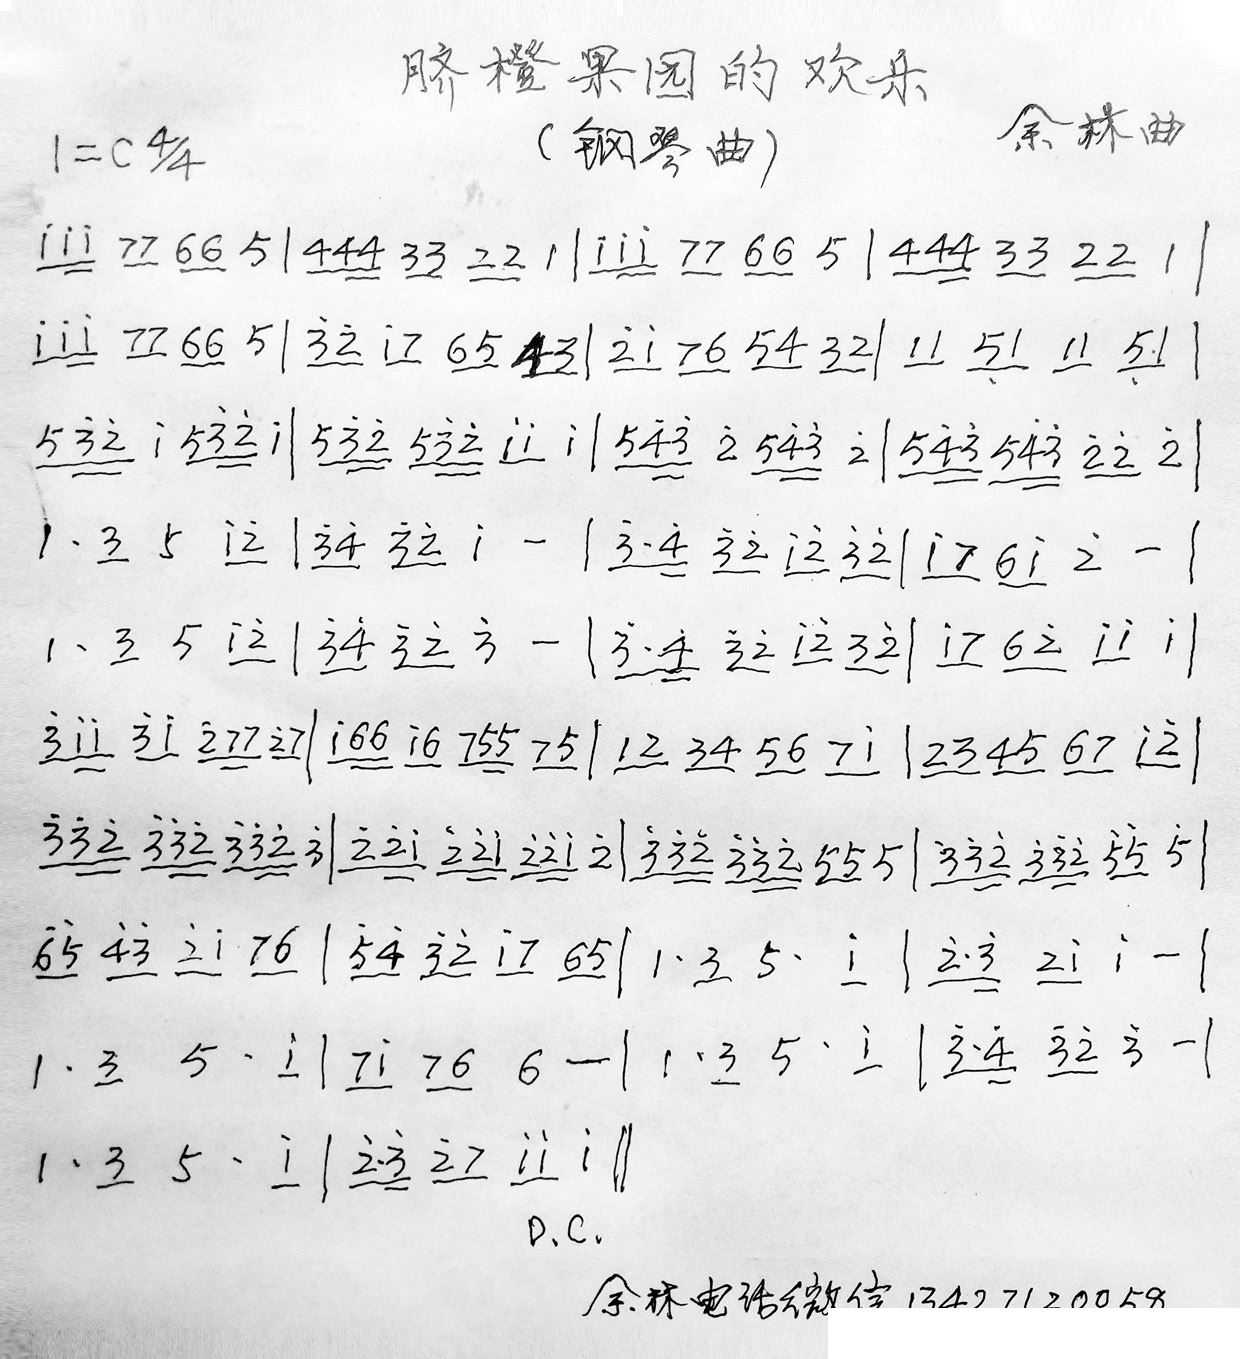 脐橙果园的欢乐
1=C 4/4 (钢琴曲) 余林曲
i̇i̇i̇ 77 66 5 | 444 33 22 1 | i̇i̇i̇ 77 66 5 | 444 33 22 1 |
i̇i̇i̇ 77 66 5 | 3̇2̇ i̇7 65 43 | 2̇i̇ 76 54 32 | 11 5̣1 11 5̣1 |
53̇2̇ i̇ 53̇2̇ i̇ | 53̇2̇ 53̇2̇ i̇i̇ i̇ | 54̇3̇ 2̇ 54̇3̇ 2̇ | 54̇3̇ 54̇3̇ 2̇2̇ 2̇ |
1· 3 5 i̇2̇ | 3̇4̇ 3̇2̇ i̇ - | 3̇·4̇ 3̇2̇ i̇2̇ 3̇2̇ | i̇7 6i̇ 2̇ - |
1· 3 5 i̇2̇ | 3̇4̇ 3̇2̇ 3̇ - | 3̇·4̇ 3̇2̇ i̇2̇ 3̇2̇ | i̇7 62̇ i̇i̇ i̇ |
3̇i̇i̇ 3̇i̇ 2̇77 2̇7 | i̇66 i̇6 755 75 | 12 34 56 7i̇ | 23 45 67 i̇2̇ |
3̇3̇2̇ 3̇3̇2̇ 3̇3̇2̇ 3̇ | 2̇2̇i̇ 2̇2̇i̇ 2̇2̇i̇ 2̇ | 3̇3̇2̇ 3̇3̇2̇ 55 5 | 3̇3̇2̇ 3̇3̇2̇ 5̇5̇ 5̇ |
6̇5̇ 4̇3̇ 2̇i̇ 76 | 5̇4̇ 3̇2̇ i̇7 65 | 1· 3 5· i̇ | 2̇·3̇ 2i̇ i̇ - |
1· 3 5· i̇ | 7i̇ 76 6 — | 1· 3 5· i̇ | 3̇·4̇ 3̇2̇ 3̇ - |
1· 3 5· i̇ | 2̇·3̇ 2̇7 i̇i̇ i̇ ‖
D.C.
余林电话微信 13427120059